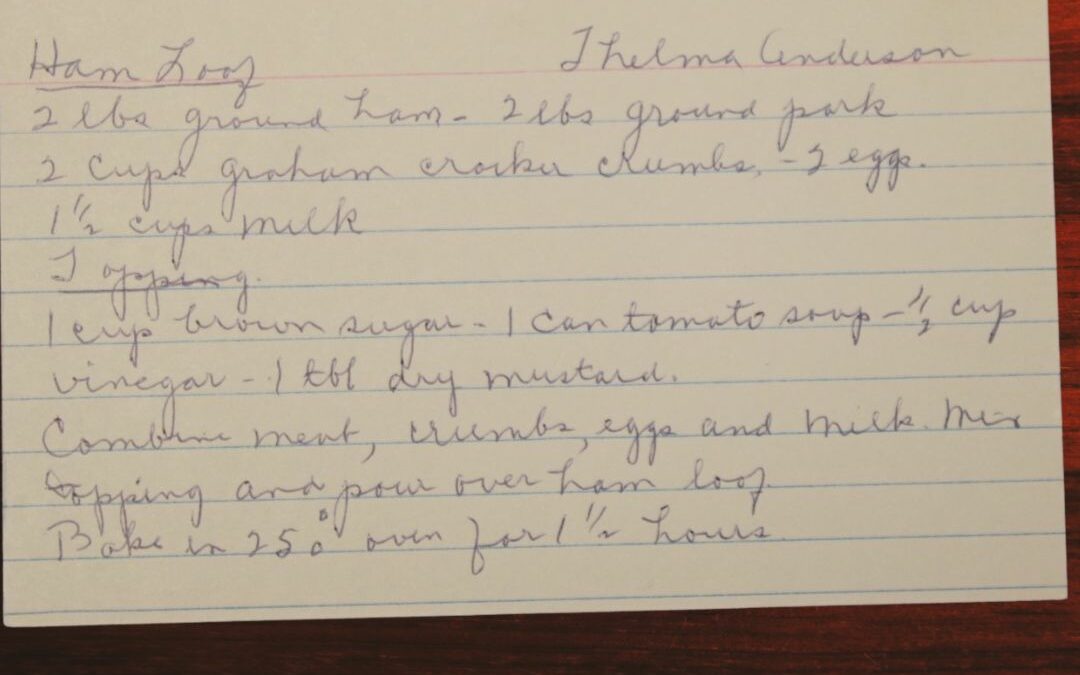 Ham Loaf Thelma Anderson
2 lbs ground ham - 2 lbs ground pork
2 Cups graham cracker crumbs, - 2 eggs.
1 1/2 cups milk
Topping.
1 cup brown sugar - 1 can tomato soup - 1/2 cup
vinegar - 1 tbl dry mustard.
Combine meat, crumbs, eggs and milk. Mix
topping and pour over ham loaf.
Bake in 250° oven for 1 1/2 hours.